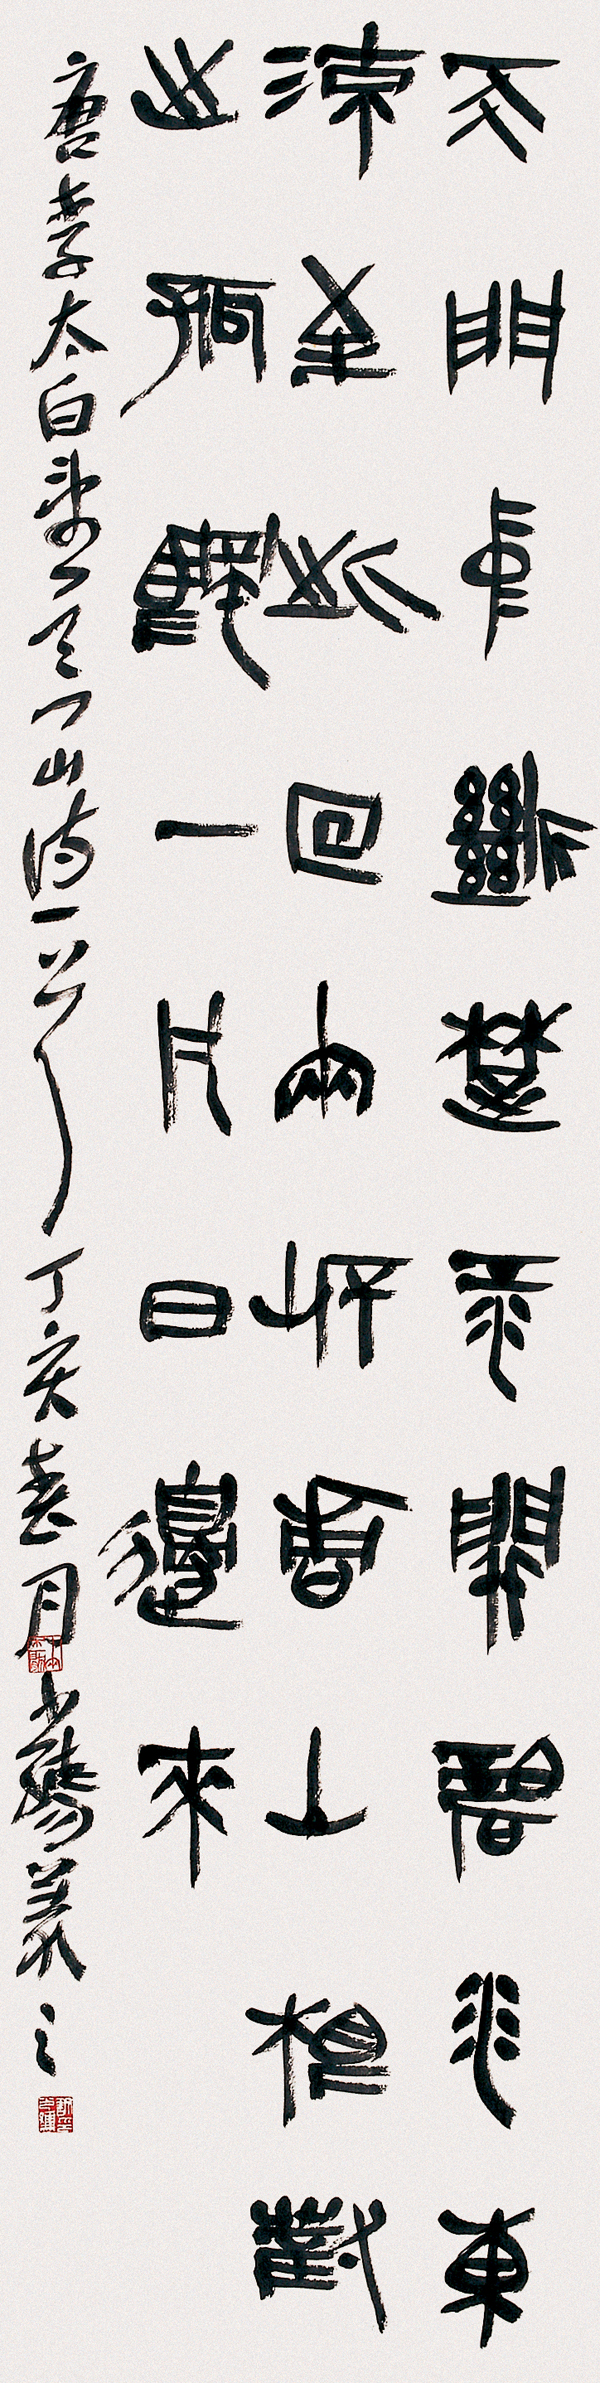 天門中斷楚江開碧水東
流至此回兩岸青山相對
出孤颿一片日邊來
唐李太白望天門山詩一首丁亥春月義之